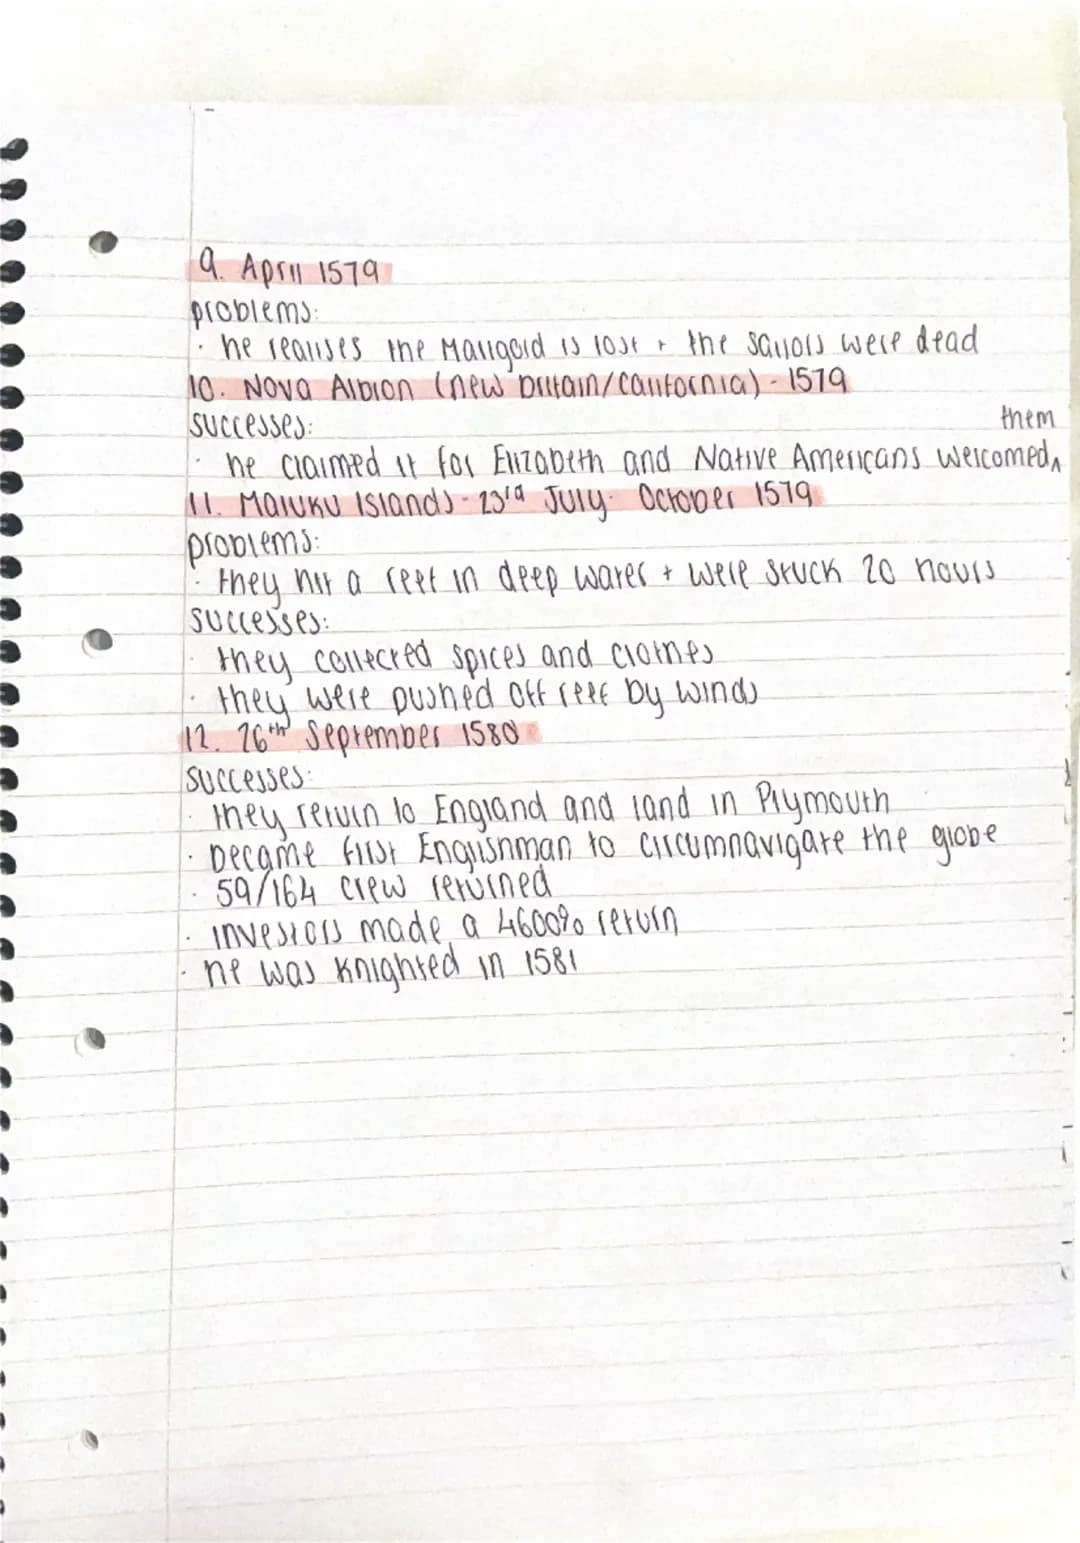 9. April 1579
problems:
· he realises the Marigold is lost + the sailors were dead
10. Nova Albion (new britain/california) - 1579
successes:
· he claimed it for Elizabeth and Native Americans welcomed^ them
11. Maluku Islands - 23rd July - October 1579
problems:
· they hit a reef in deep water + were stuck 20 hours
successes:
· they collected spices and clothes
· they were pushed off reef by winds
12. 26th September 1580
successes:
· they return to England and land in Plymouth
· became first Englishman to circumnavigate the globe
· 59/164 crew returned
· investors made a 4600% return
· he was knighted in 1581